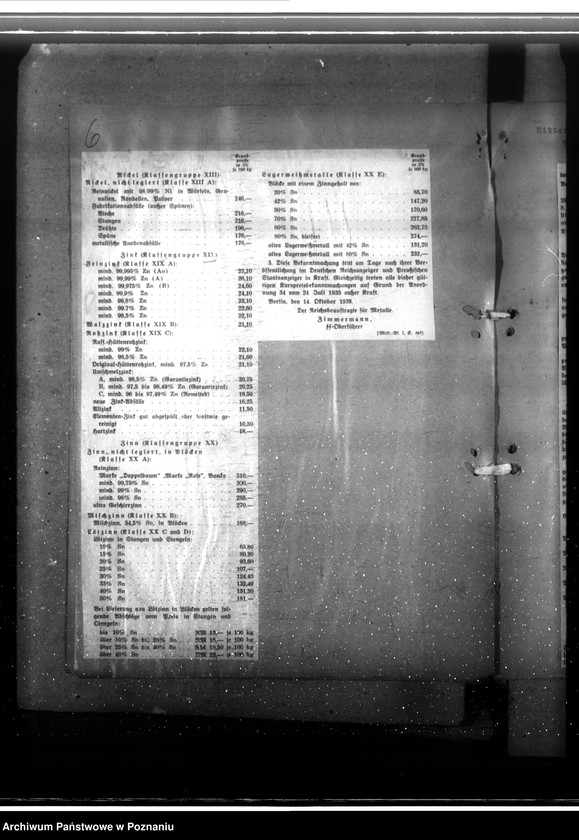 6
Grund-
preise
in RM
je 100 kg
Nickel (Klassengruppe XIII)
Nickel, nicht legiert (Klasse XIII A):
Reinnickel mit 98,99% Ni in Würfeln, Gra-
nalien, Rondellen, Pulver 246,—
Fabrikationsabfälle (außer Spänen):
Bleche 216,—
Stangen 216,—
Drähte 196,—
Späne 176,—
metallische Anodenabfälle 176,—
Zink (Klassengruppe XIX)
Feinzink (Klasse XIX A):
mind. 99,995% Zn 27,10
mind. 99,99% Zn (A) 26,10
mind. 99,975% Zn (B) 24,60
mind. 99,9% Zn 24,10
mind. 99,8% Zn 23,10
mind. 99,7% Zn 22,60
mind. 99,5% Zn 22,10
Walzzink (Klasse XIX B): 21,10
Rohzink (Klasse XIX C):
Raff.-Hüttenrohzink:
mind. 99% Zn 22,10
mind. 98,5% Zn 21,60
Original-Hüttenrohzink, mind. 97,5% Zn 21,10
Umschmelzzink:
A, mind. 98,5% Zn (Garantiezink) 20,75
B, mind. 97,5 bis 98,49% Zn (Garantiezink) 20,25
C, mind. 96 bis 97,49% Zn (Remelted) 19,50
neue Zink-Abfälle 16,25
Altzink 11,50
Elementen-Zink gut abgespült oder sonstwie ge-
reinigt 10,50
Hartzink 18,—
Zinn (Klassengruppe XX)
Zinn, nicht legiert, in Blöcken
(Klasse XX A):
Reinzinn:
Marke „Doppelbaum“ „Marke „Rose“, Banka 310,—
mind. 99,75% Sn 300,—
mind. 99% Sn 290,—
mind. 98% Sn 285,—
altes Geschirrzinn 270,—
Mischzinn (Klasse XX B):
Mischzinn, 54,5% Sn, in Blöcken 168,—
Lötzinn (Klasse XX C und D):
Lötzinn in Stangen und Stengeln:
10% Sn 63,80
15% Sn 80,20
20% Sn 93,60
25% Sn 107,—
30% Sn 124,40
33% Sn 132,40
40% Sn 151,20
50% Sn 181,—
Bei Lieferung von Lötzinn in Blöcken gelten fol-
gende Abschläge vom Preis in Stangen und
Stengeln:
bis 10% Sn RM 13,— je 100 kg
über 10% Sn bis 25% Sn RM 16,— je 100 kg
über 25% Sn bis 40% Sn RM 19,50 je 100 kg
über 40% Sn RM 22,— je 100 kg
Grund-
preise
in RM
je 100 kg
Lagerweißmetalle (Klasse XX E):
Blöcke mit einem Zinngehalt von:
20% Sn 85,70
42% Sn 147,20
50% Sn 170,60
70% Sn 227,85
80% Sn 262,75
80% Sn, bleifrei 274,—
altes Lagerweißmetall mit 42% Sn 131,70
altes Lagerweißmetall mit 80% Sn 232,—
3. Diese Bekanntmachung tritt am Tage nach ihrer Ver-
öffentlichung im Deutschen Reichsanzeiger und Preußischen
Staatsanzeiger in Kraft. Gleichzeitig treten alle bisher gül-
tigen Kurspreisbekanntmachungen auf Grund der Anord-
nung 34 vom 24. Juli 1935 außer Kraft.
Berlin, den 14. Oktober 1939.
Der Reichsbeauftragte für Metalle.
Zimmermann,
ᛋᛋ-Oberführer
Archiwum Państwowe w Poznaniu